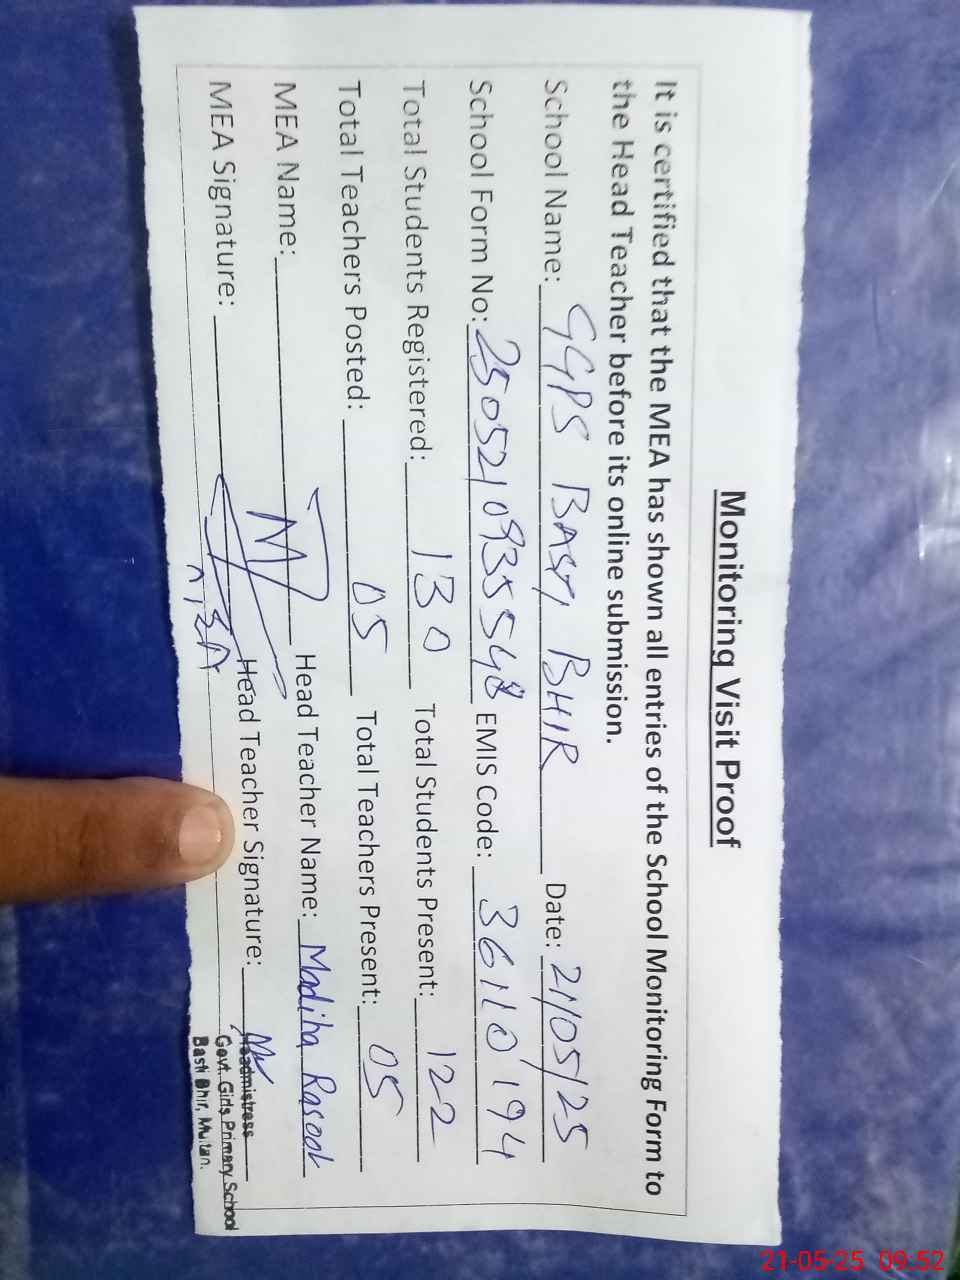 Monitoring Visit Proof
It is certified that the MEA has shown all entries of the School Monitoring Form to
the Head Teacher before its online submission.
School Name: GGPS BASTI BHIR Date: 21/05/25
School Form No: 25052109355548 EMIS Code: 36110194
Total Students Registered: 130 Total Students Present: 122
Total Teachers Posted: 05 Total Teachers Present: 05
MEA Name: Head Teacher Name: Madiha Rasool
MEA Signature: Head Teacher Signature:
Headmistress
Govt. Girls Primary School
Basti Bhir, Multan.
21-05-25 09:52